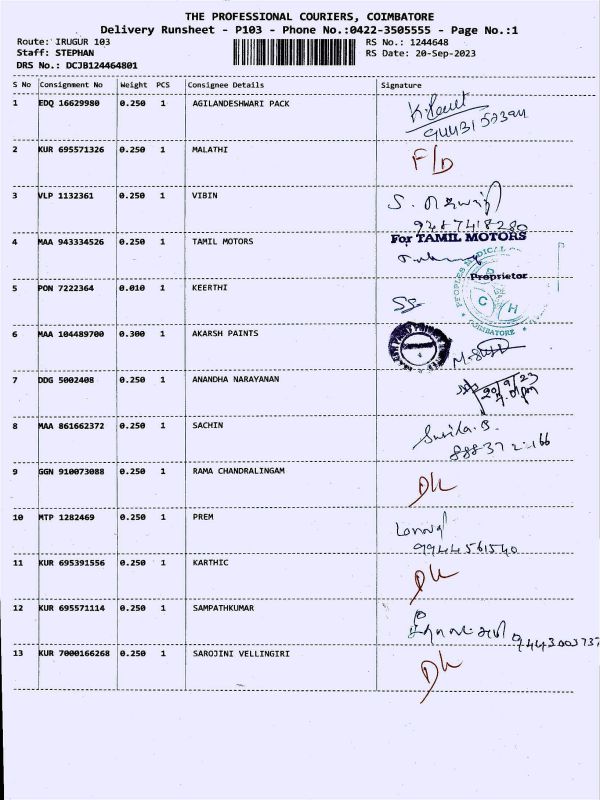 THE PROFESSIONAL COURIERS, COIMBATORE
Delivery Runsheet - P103 - Phone No.:0422-3505555 - Page No.:1
Route: IRUGUR 103 RS No.: 1244648
Staff: STEPHAN RS Date: 20-Sep-2023
DRS No.: DCJB124464801
S No Consignment No Weight PCS Consignee Details Signature
1 EDQ 16629980 0.250 1 AGILANDESHWARI PACK
2 KUR 695571326 0.250 1 MALATHI F/D
3 VLP 1132361 0.250 1 VIBIN
9487418280
4 MAA 943334526 0.250 1 TAMIL MOTORS For TAMIL MOTORS
Proprietor
5 PON 7222364 0.010 1 KEERTHI
C H
COIMBATORE
6 MAA 104489700 0.300 1 AKARSH PAINTS
7 DDG 5002408 0.250 1 ANANDHA NARAYANAN 20/9/23
8 MAA 861662372 0.250 1 SACHIN
9 GGN 910073088 0.250 1 RAMA CHANDRALINGAM DL
10 MTP 1282469 0.250 1 PREM
9944561540
11 KUR 695391556 0.250 1 KARTHIC DL
12 KUR 695571114 0.250 1 SAMPATHKUMAR
9443003737
13 KUR 7000166268 0.250 1 SAROJINI VELLINGIRI DL